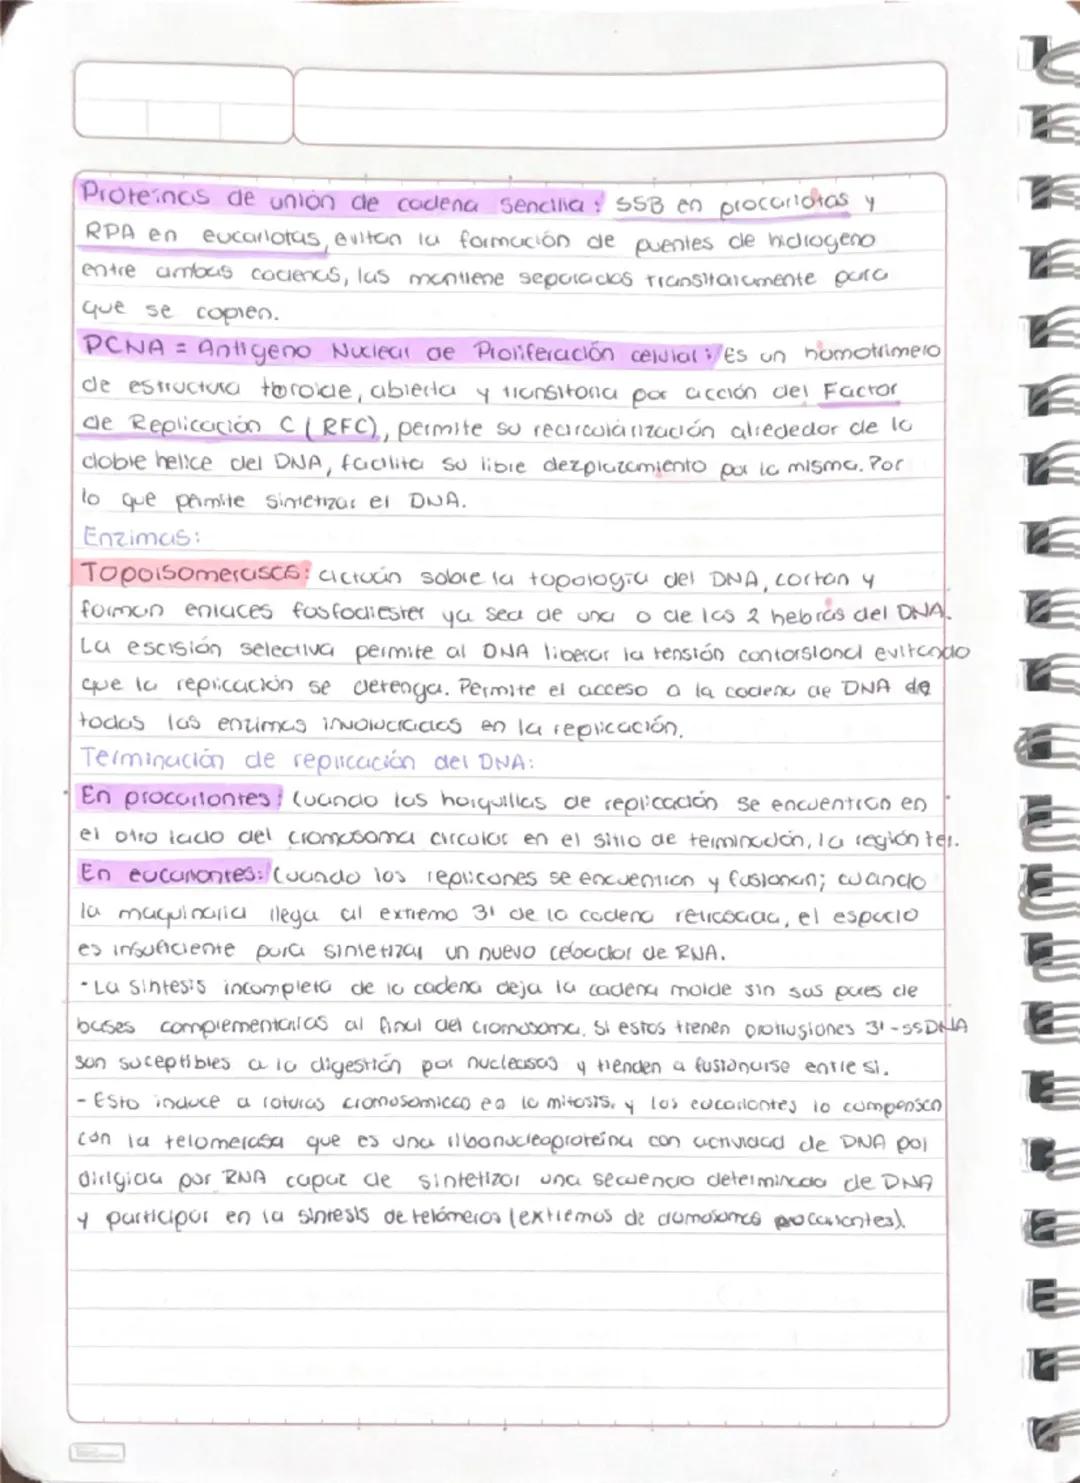 Proteínas de unión de cadena sencilla: SSB en procariotas y
RPA en eucariotas, evitan la formación de puentes de hidrogeno
entre ambas cadenas, las mantiene separadas transitoriamente para
que se copien.
PCNA = Antigeno Nuclear de Proliferación celular: Es un homotrimero
de estructura toroide, abierta y transitoria por acción del Factor
de Replicación C (RFC), permite su recircularización alrededor de la
doble helice del DNA, facilita su libre dezplazamiento por la misma. Por
lo que permite sintetizar el DNA.
Enzimas:
Topoisomerasas: actúan sobre la topología del DNA, cortan y
forman enlaces fosfodiester ya sea de una o de las 2 hebras del DNA.
La escisión selectiva permite al DNA liberar la tensión contorsional evitando
que la replicación se detenga. Permite el acceso a la cadena de DNA de
todas las enzimas involucradas en la replicación.
Terminación de replicación del DNA:
En procariontes: Cuando las horquillas de replicación se encuentran en
el otro lado del cromosoma circular en el sitio de terminación, la región ter.
En eucariontes: Cuando los replicones se encuentran y fusionan; cuando
la maquinaria llega al extremo 3' de la cadena retrasada, el espacio
es insuficiente para sintetizar un nuevo cebador de RNA.
• La síntesis incompleta de la cadena deja la cadena molde sin sus pares de
bases complementarias al final del cromosoma. Si estos tienen protrusiones 3'-ssDNA
son suceptibles a la digestión por nucleasas y tienden a fusionarse entre si.
- Esto induce a roturas cromosomicas en la mitosis, y los eucariontes lo compensan
con la telomerasa que es una ribonucleoproteína con actividad de DNA pol
dirigida por RNA capaz de sintetizar una secuencia determinada de DNA
y participar en la síntesis de telómeros (extremos de cromosomas procariontes).